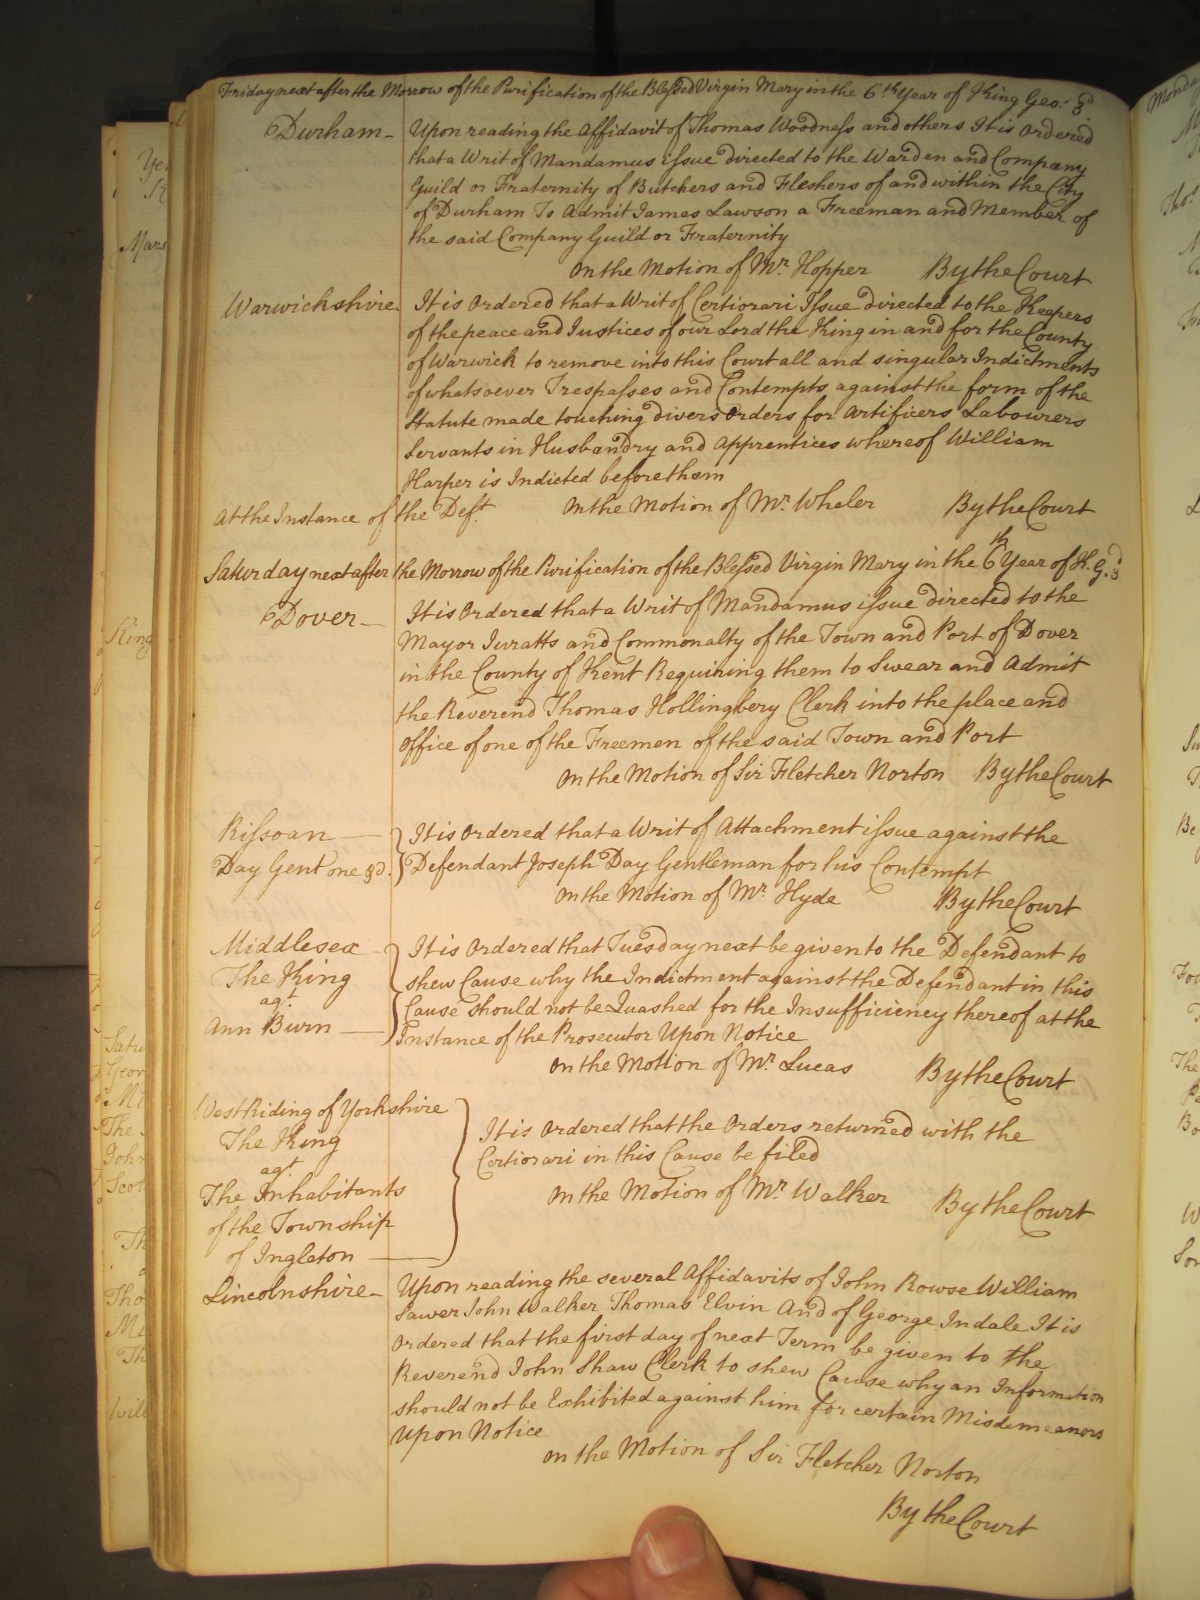 Friday next after the Morrow of the Purification of the Blessed Virgin Mary in the 6th Year of King Geo: 3d
Durham - Upon reading the Affidavit of Thomas Woodness and others It is Ordered
that a Writ of Mandamus issue directed to the Warden and Company
Guild or Fraternity of Butchers and Fleshers of and within the City
of Durham To Admit James Lawson a Freeman and Member of
the said Company Guild or Fraternity
On the Motion of Mr. Hopper By the Court
Warwickshire. It is Ordered that a Writ of Certiorari Issue directed to the Keepers
of the peace and Justices of our Lord the King in and for the County
of Warwick to remove into this Court all and singular Indictments
of whatsoever Trespasses and Contempts against the form of the
Statute made touching divers Orders for Artificers Labourers
Servants in Husbandry and Apprentices whereof William
Harper is Indicted before them
At the Instance of the Deft. On the Motion of Mr. Wheler By the Court
Saturday next after the Morrow of the Purification of the Blessed Virgin Mary in the 6th Year of K. G. 3d
Dover - It is Ordered that a Writ of Mandamus issue directed to the
Mayor Juratts and Commonalty of the Town and Port of Dover
in the County of Kent Requiring them to Swear and Admit
the Reverend Thomas Hollingbery Clerk into the place and
Office of one of the Freemen of the said Town and Port
On the Motion of Sir Fletcher Norton By the Court
Rissoan - It is Ordered that a Writ of Attachment issue against the
Day Gent one &c. Defendant Joseph Day Gentleman for his Contempt
On the Motion of Mr. Hyde By the Court
Middlesex - It is Ordered that Tuesday next be given to the Defendant to
The King shew Cause why the Indictment against the Defendant in this
agt. Cause should not be Quashed for the Insufficiency thereof at the
Ann Burn - Instance of the Prosecutor Upon Notice
On the Motion of Mr. Lucas By the Court
West Riding of Yorkshire
The King It is Ordered that the Orders returned with the
agt. Certiorari in this Cause be filed
The Inhabitants On the Motion of Mr. Walker By the Court
of the Township
of Ingleton -
Lincolnshire - Upon reading the several Affidavits of John Rowse William
Sawer John Walker Thomas Elvin And of George Indale It is
Ordered that the first day of next Term be given to the
Reverend John Shaw Clerk to shew Cause why an Information
should not be Exhibited against him for certain Misdemeanors
Upon Notice
On the Motion of Sir Fletcher Norton
By the Court